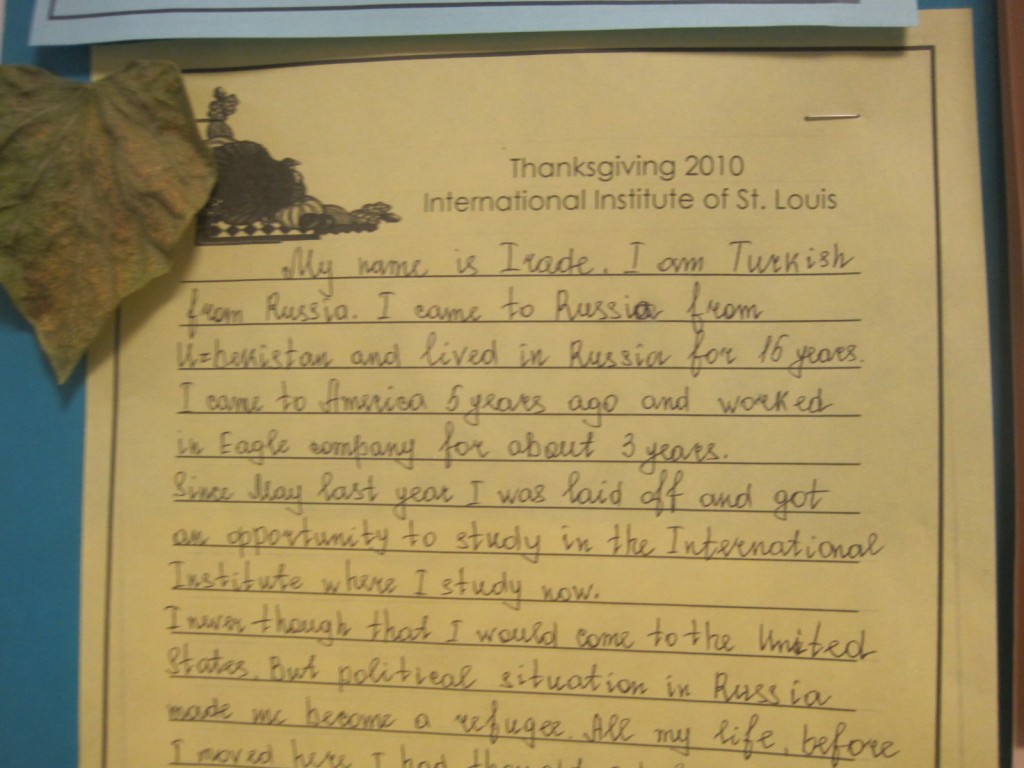 Thanksgiving 2010
International Institute of St. Louis
My name is Irade. I am Turkish
from Russia. I came to Russia from
Uzbekistan and lived in Russia for 16 years.
I came to America 5 years ago and worked
in Eagle company for about 3 years.
Since May last year I was laid off and got
an opportunity to study in the International
Institute where I study now.
I never though that I would come to the United
States. But political situation in Russia
made me become a refugee. All my life, before
I moved here I had thought